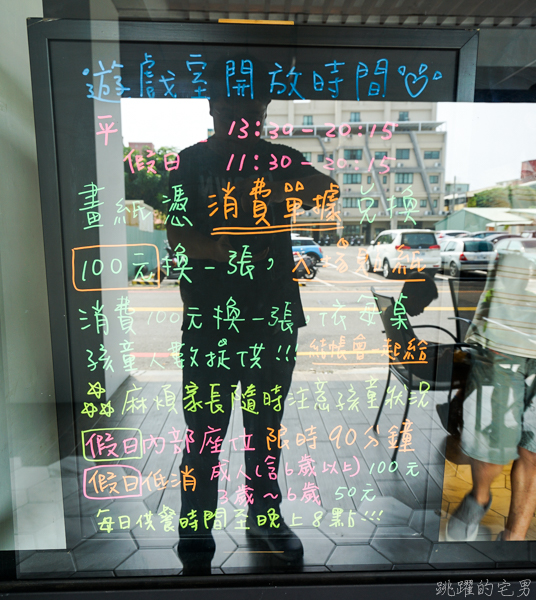 遊戲室開放時間
平 13:30-20:15
假日 11:30-20:15
畫紙憑 消費單據 兌換
100元換一張,
消費100元換一張,依每桌
孩童人數提供!!! 結帳會一起給
麻煩家長隨時注意孩童狀況
假日內部座位 限時90分鐘
假日低消 成人(含6歲以上)100元
3歲~6歲 50元
每日供餐時間至晚上8點!!!
跳躍的宅男